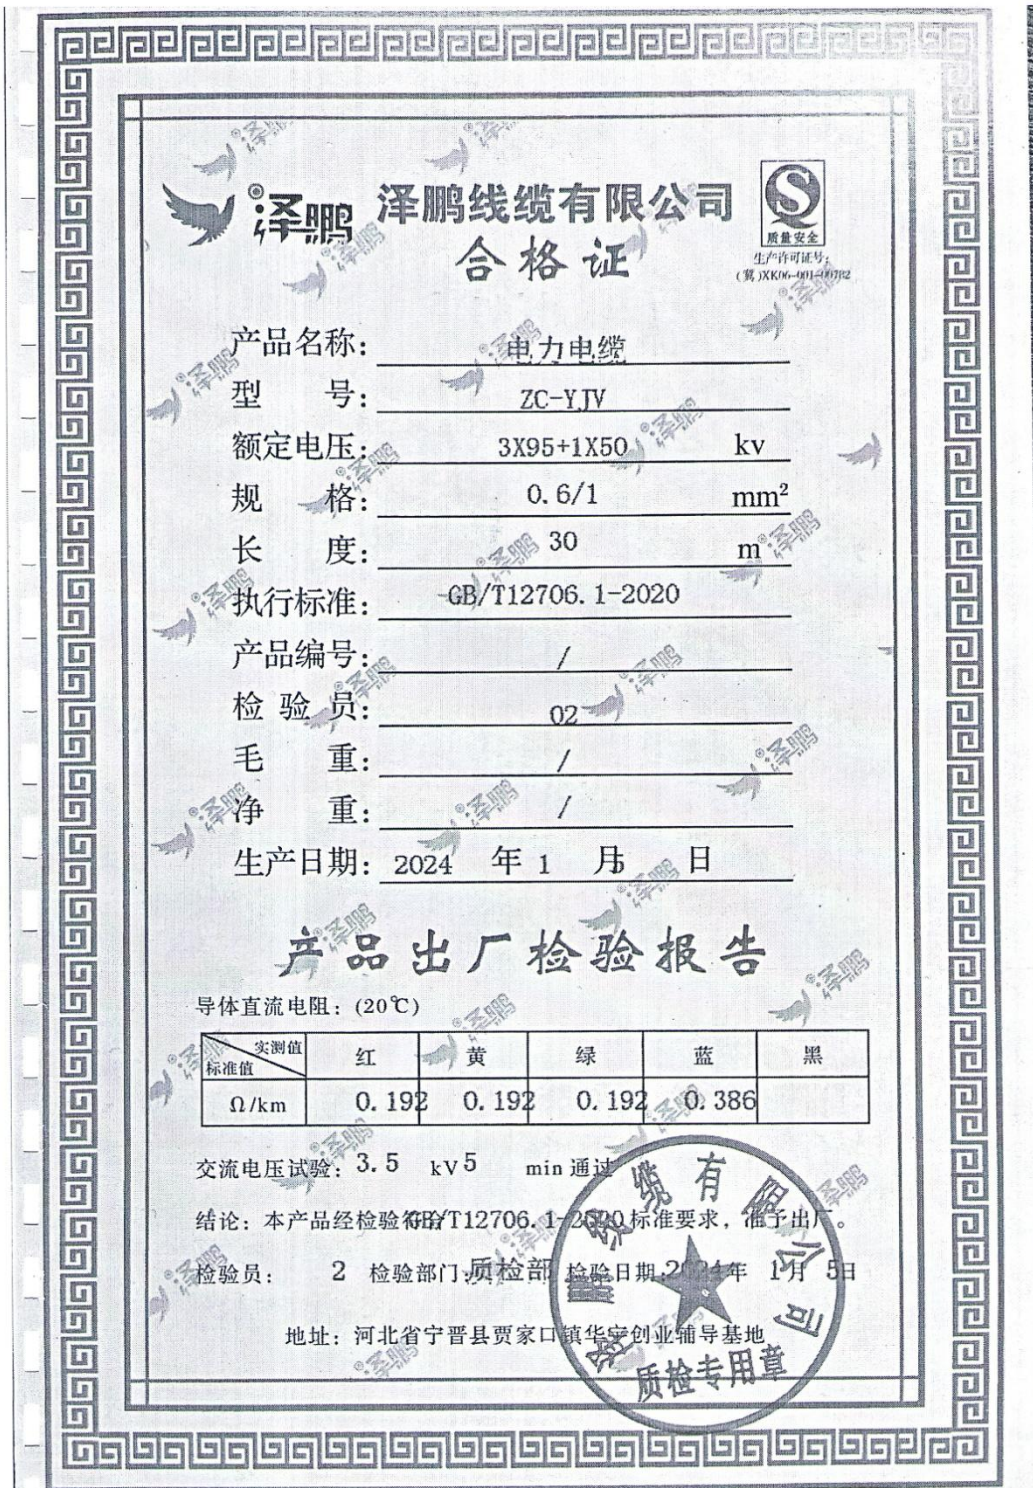 泽鹏 泽鹏线缆有限公司
合格证
质量安全
生产许可证号:
(冀)XK06-001-00782
产品名称: 电力电缆
型 号: ZC-YJV
额定电压: 3X95+1X50 kv
规 格: 0.6/1 mm²
长 度: 30 m
执行标准: GB/T12706.1-2020
产品编号: /
检 验 员: 02
毛 重: /
净 重: /
生产日期: 2024 年 1 月 5 日
产品出厂检验报告
导体直流电阻: (20℃)
实测值 标准值 红 黄 绿 蓝 黑
Ω/km 0.192 0.192 0.192 0.386
交流电压试验: 3.5 kV 5 min 通过
结论: 本产品经检验符合GB/T12706.1-2020标准要求, 准予出厂。
检验员: 2 检验部门:质检部 检验日期:2024年 1月 5日
地址: 河北省宁晋县贾家口镇华宁创业辅导基地
泽鹏线缆有限公司
质检专用章